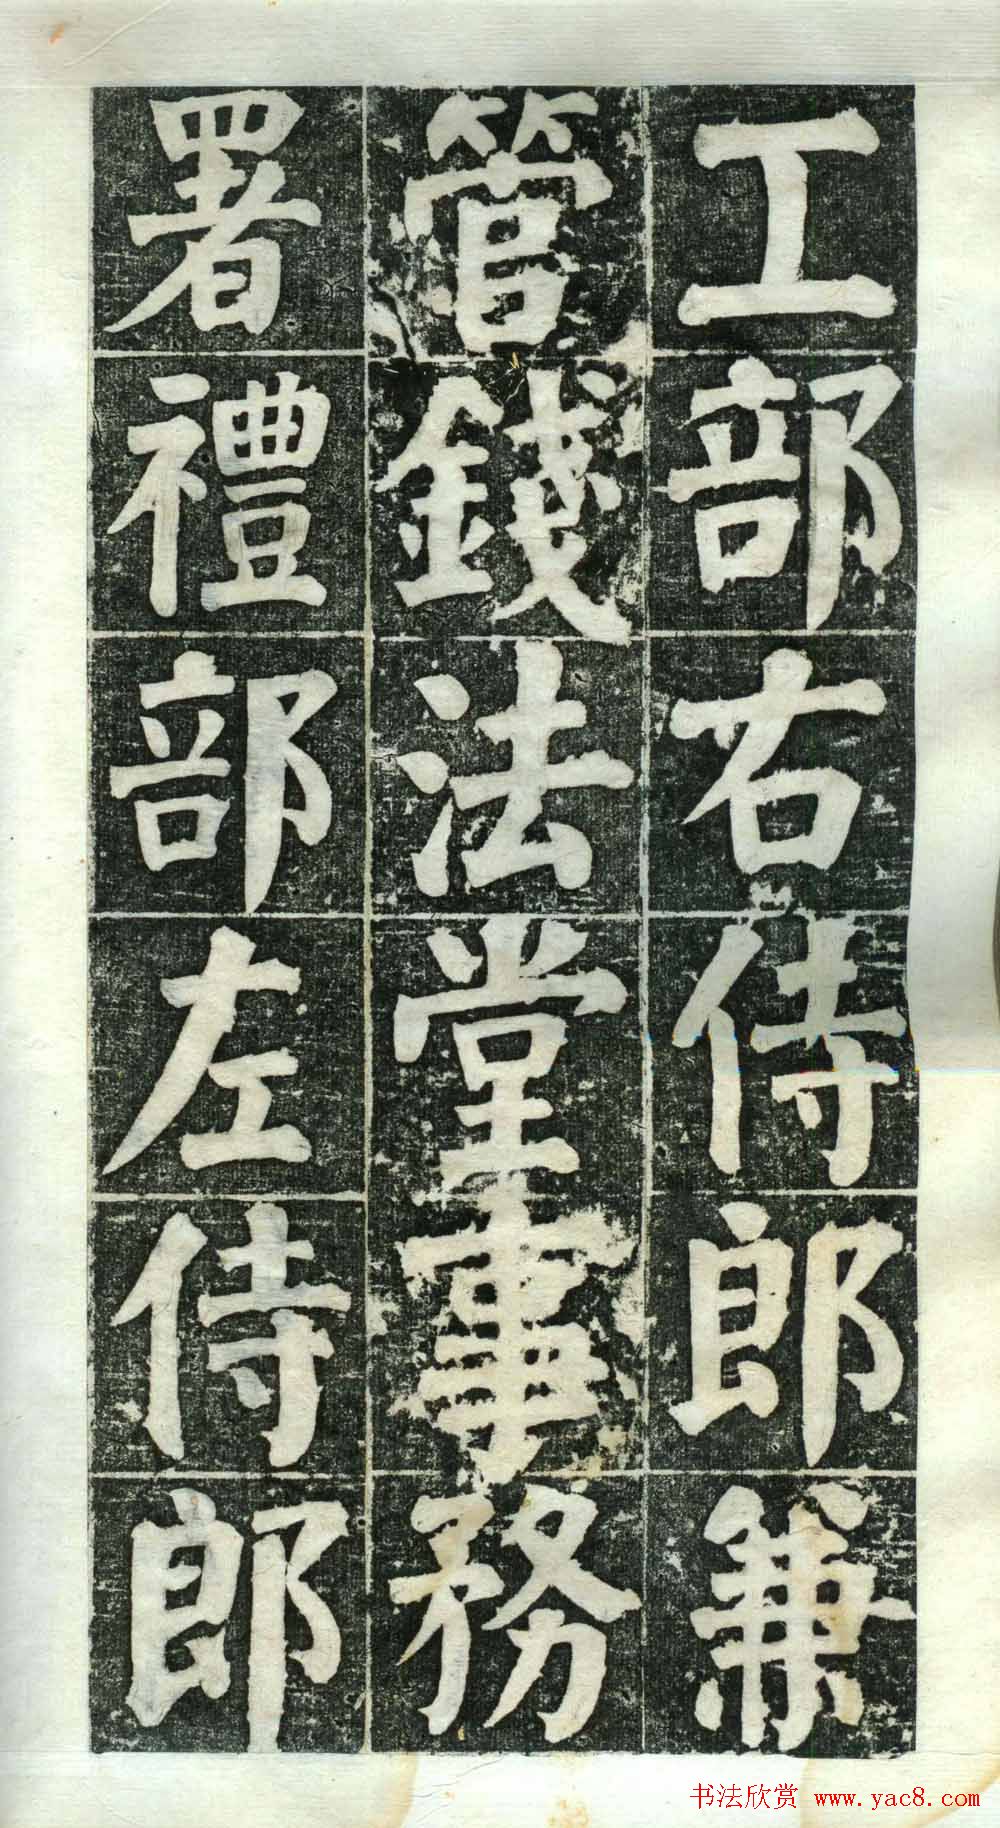 工部右侍郎兼
管錢法堂事務
署禮部左侍郎
书法欣赏 www.yac8.com